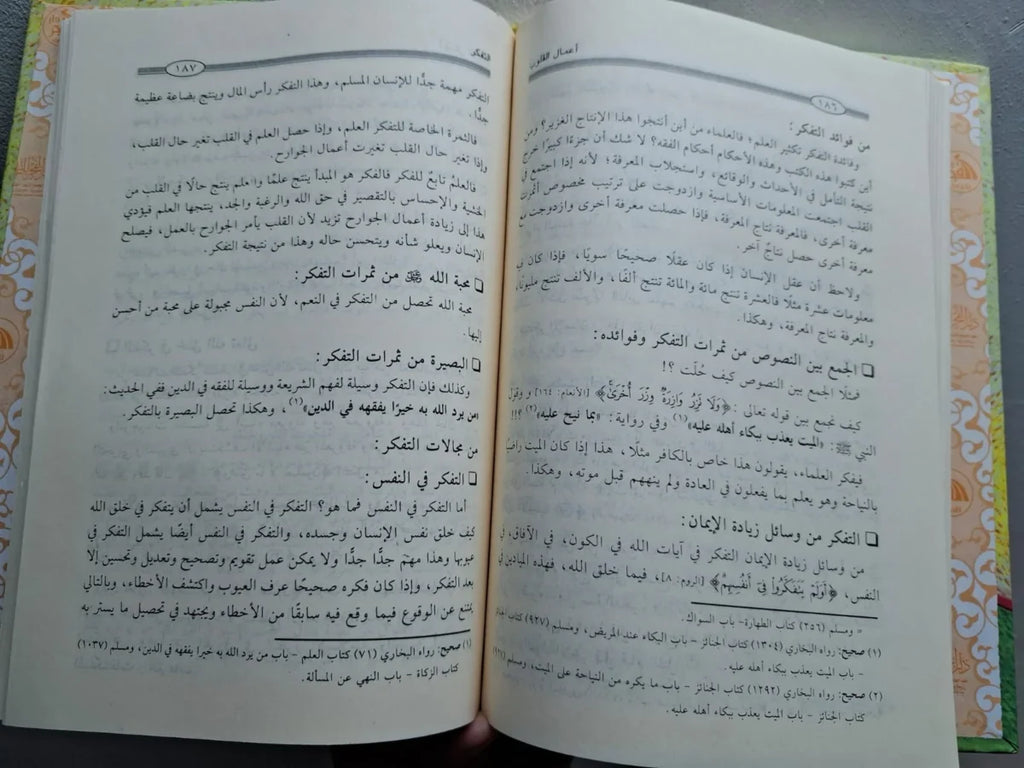 أعمال القلوب
١٨٦
من فوائد التفكر:
وفائدة التفكر تكثير العلم، فالعلماء من أين أنتجوا هذا الإنتاج الغزير؟ ومن
أين كتبوا هذه الكتب وهذه الأحكام أحكام الفقه؟ لا شك أن جزءًا كبيرًا خرج
نتيجة التأمل في الأحداث والوقائع، واستجلاب المعرفة؛ لأنه إذا اجتمع في
القلب اجتمعت المعلومات الأساسية وازدوجت على ترتيب مخصوص أثمرت
معرفة أخرى، فالمعرفة نتاج المعرفة، فإذا حصلت معرفة أخرى وازدوجت مع
معرفة أخرى حصل نتاج آخر.
ولاحظ أن عقل الإنسان إذا كان عقلًا صحيحًا سويًا، فإذا كان في
معلومات عشرة مثلًا فالعشرة تنتج مائة والمائة تنتج ألفًا، والألف تنتج مليونًا،
والمعرفة نتاج المعرفة، وهكذا.
❑ الجمع بين النصوص من ثمرات التفكر وفوائده:
فمثلًا الجمع بين النصوص كيف حُلت ؟!
كيف نجمع بين قوله تعالى: ﴿وَلَا تَزِرُ وَازِرَةٌ وِزْرَ أُخْرَىٰ﴾ [الأنعام: ١٦٤] و وقول
النبي ﷺ: «الميت يعذب ببكاء أهله عليه»(١) وفي رواية: «بما نيح عليه»(٢)؟!!
فيفكر العلماء، يقولون هذا خاص بالكافر مثلًا، هذا إذا كان الميت راضيًا
بالنياحة وهو يعلم بما يفعلون في العادة ولم ينههم قبل موته، وهكذا.
❑ التفكر من وسائل زيادة الإيمان:
من وسائل زيادة الإيمان التفكر في آيات الله في الكون، في الآفاق، في
النفس، ﴿أَوَلَمْ يَتَفَكَّرُوا فِي أَنْفُسِهِمْ﴾ [الروم: ٨]، فيما خلق الله، فهذه الميادين في
= ومسلم (٢٥٦) كتاب الطهارة- باب السواك.
(١) صحيح: رواه البخاري (١٣٠٤) كتاب الجنائز- باب البكاء عند المريض، ومسلم (٩٢٧) كتاب الجنائز
- باب الميت يعذب ببكاء أهله عليه.
(٢) صحيح: رواه البخاري (١٢٩٢) كتاب الجنائز - باب ما يكره من النياحة على الميت، ومسلم
كتاب الجنائز- باب الميت يعذب ببكاء أهله عليه.
التفكر
١٨٧
التفكر مهمة جدًّا للإنسان المسلم، وهذا التفكر رأس المال وينتج بضاعة عظيمة
جدًّا.
فالثمرة الخاصة للتفكر العلم، وإذا حصل العلم في القلب تغير حال القلب،
وإذا تغير حال القلب تغيرت أعمال الجوارح.
فالعلمُ تابعٌ للفكر فالفكر هو المبدأ ينتج علمًا والعلم ينتج حالًا في القلب من
الخشية والإحساس بالتقصير في حق الله والرغبة والجد، ينتجها العلم فيؤدي
هذا إلى زيادة أعمال الجوارح تزيد لأن القلب يأمر الجوارح بالعمل، فيصلح
الإنسان ويعلو شأنه ويتحسن حاله وهذا من نتيجة التفكر.
❑ محبة الله ﷻ من ثمرات التفكر:
محبة الله تحصل من التفكر في النعم، لأن النفس مجبولة على محبة من أحسن
إليها.
❑ البصيرة من ثمرات التفكر:
وكذلك فإن التفكر وسيلة لفهم الشريعة ووسيلة للفقه في الدين ففي الحديث:
«من يرد الله به خيرًا يفقهه في الدين»(١)، وهكذا تحصل البصيرة بالتفكر.
من مجالات التفكر:
❑ التفكر في النفس:
أما التفكر في النفس فما هو؟ التفكر في النفس يشمل أن يتفكر في خلق الله
كيف خلق نفس الإنسان وجسده، والتفكر في النفس أيضًا يشمل التفكر في
عيوبها وهذا مهم جدًّا جدًّا ولا يمكن عمل تقويم وتصحيح وتعديل وتحسين إلا
بعد التفكر، وإذا كان فكره صحيحًا عرف العيوب واكتشف الأخطاء، وبالتالي
يمتنع عن الوقوع فيما وقع فيه سابقًا من الأخطاء ويجتهد في تحصيل ما يستر به
(١) صحيح: رواه البخاري (٧١) كتاب العلم - باب من يرد الله به خيرا يفقهه في الدين، ومسلم (١٠٣٧)
كتاب الزكاة - باب النهي عن المسألة.